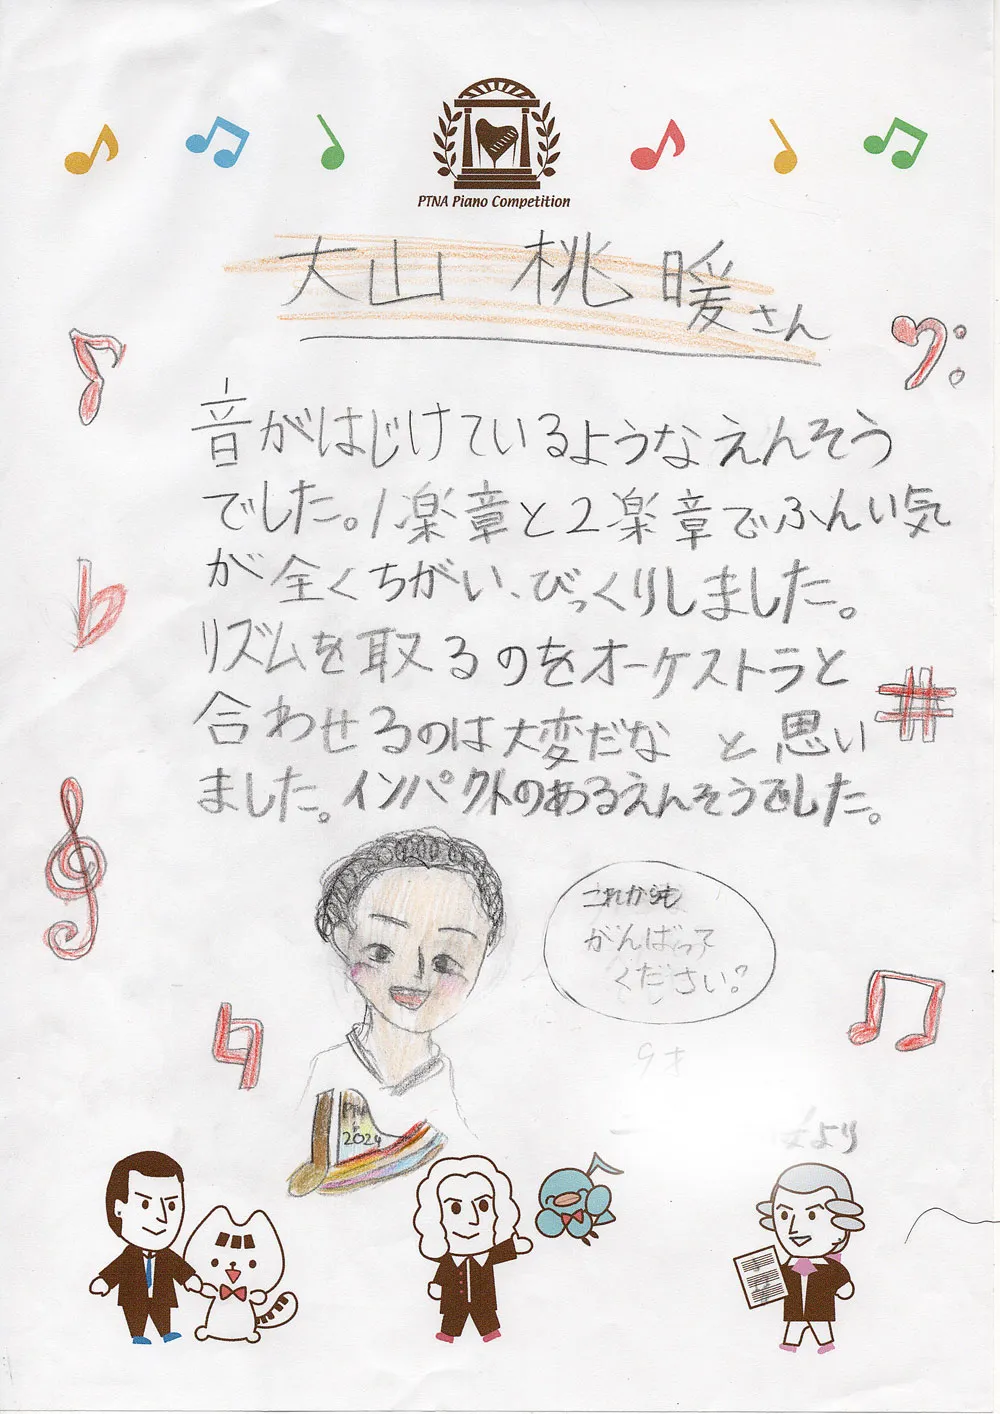 PTNA Piano Competition
大山 桃暖さん
音がはじけているようなえんそう
でした。1楽章と2楽章でふんい気
が全くちがい、びっくりしました。
リズムを取るのをオーケストラと
合わせるのは大変だな と思い
ました。インパクトのあるえんそうでした。
これからも
がんばって
ください?
9才
より
PTNA
2024